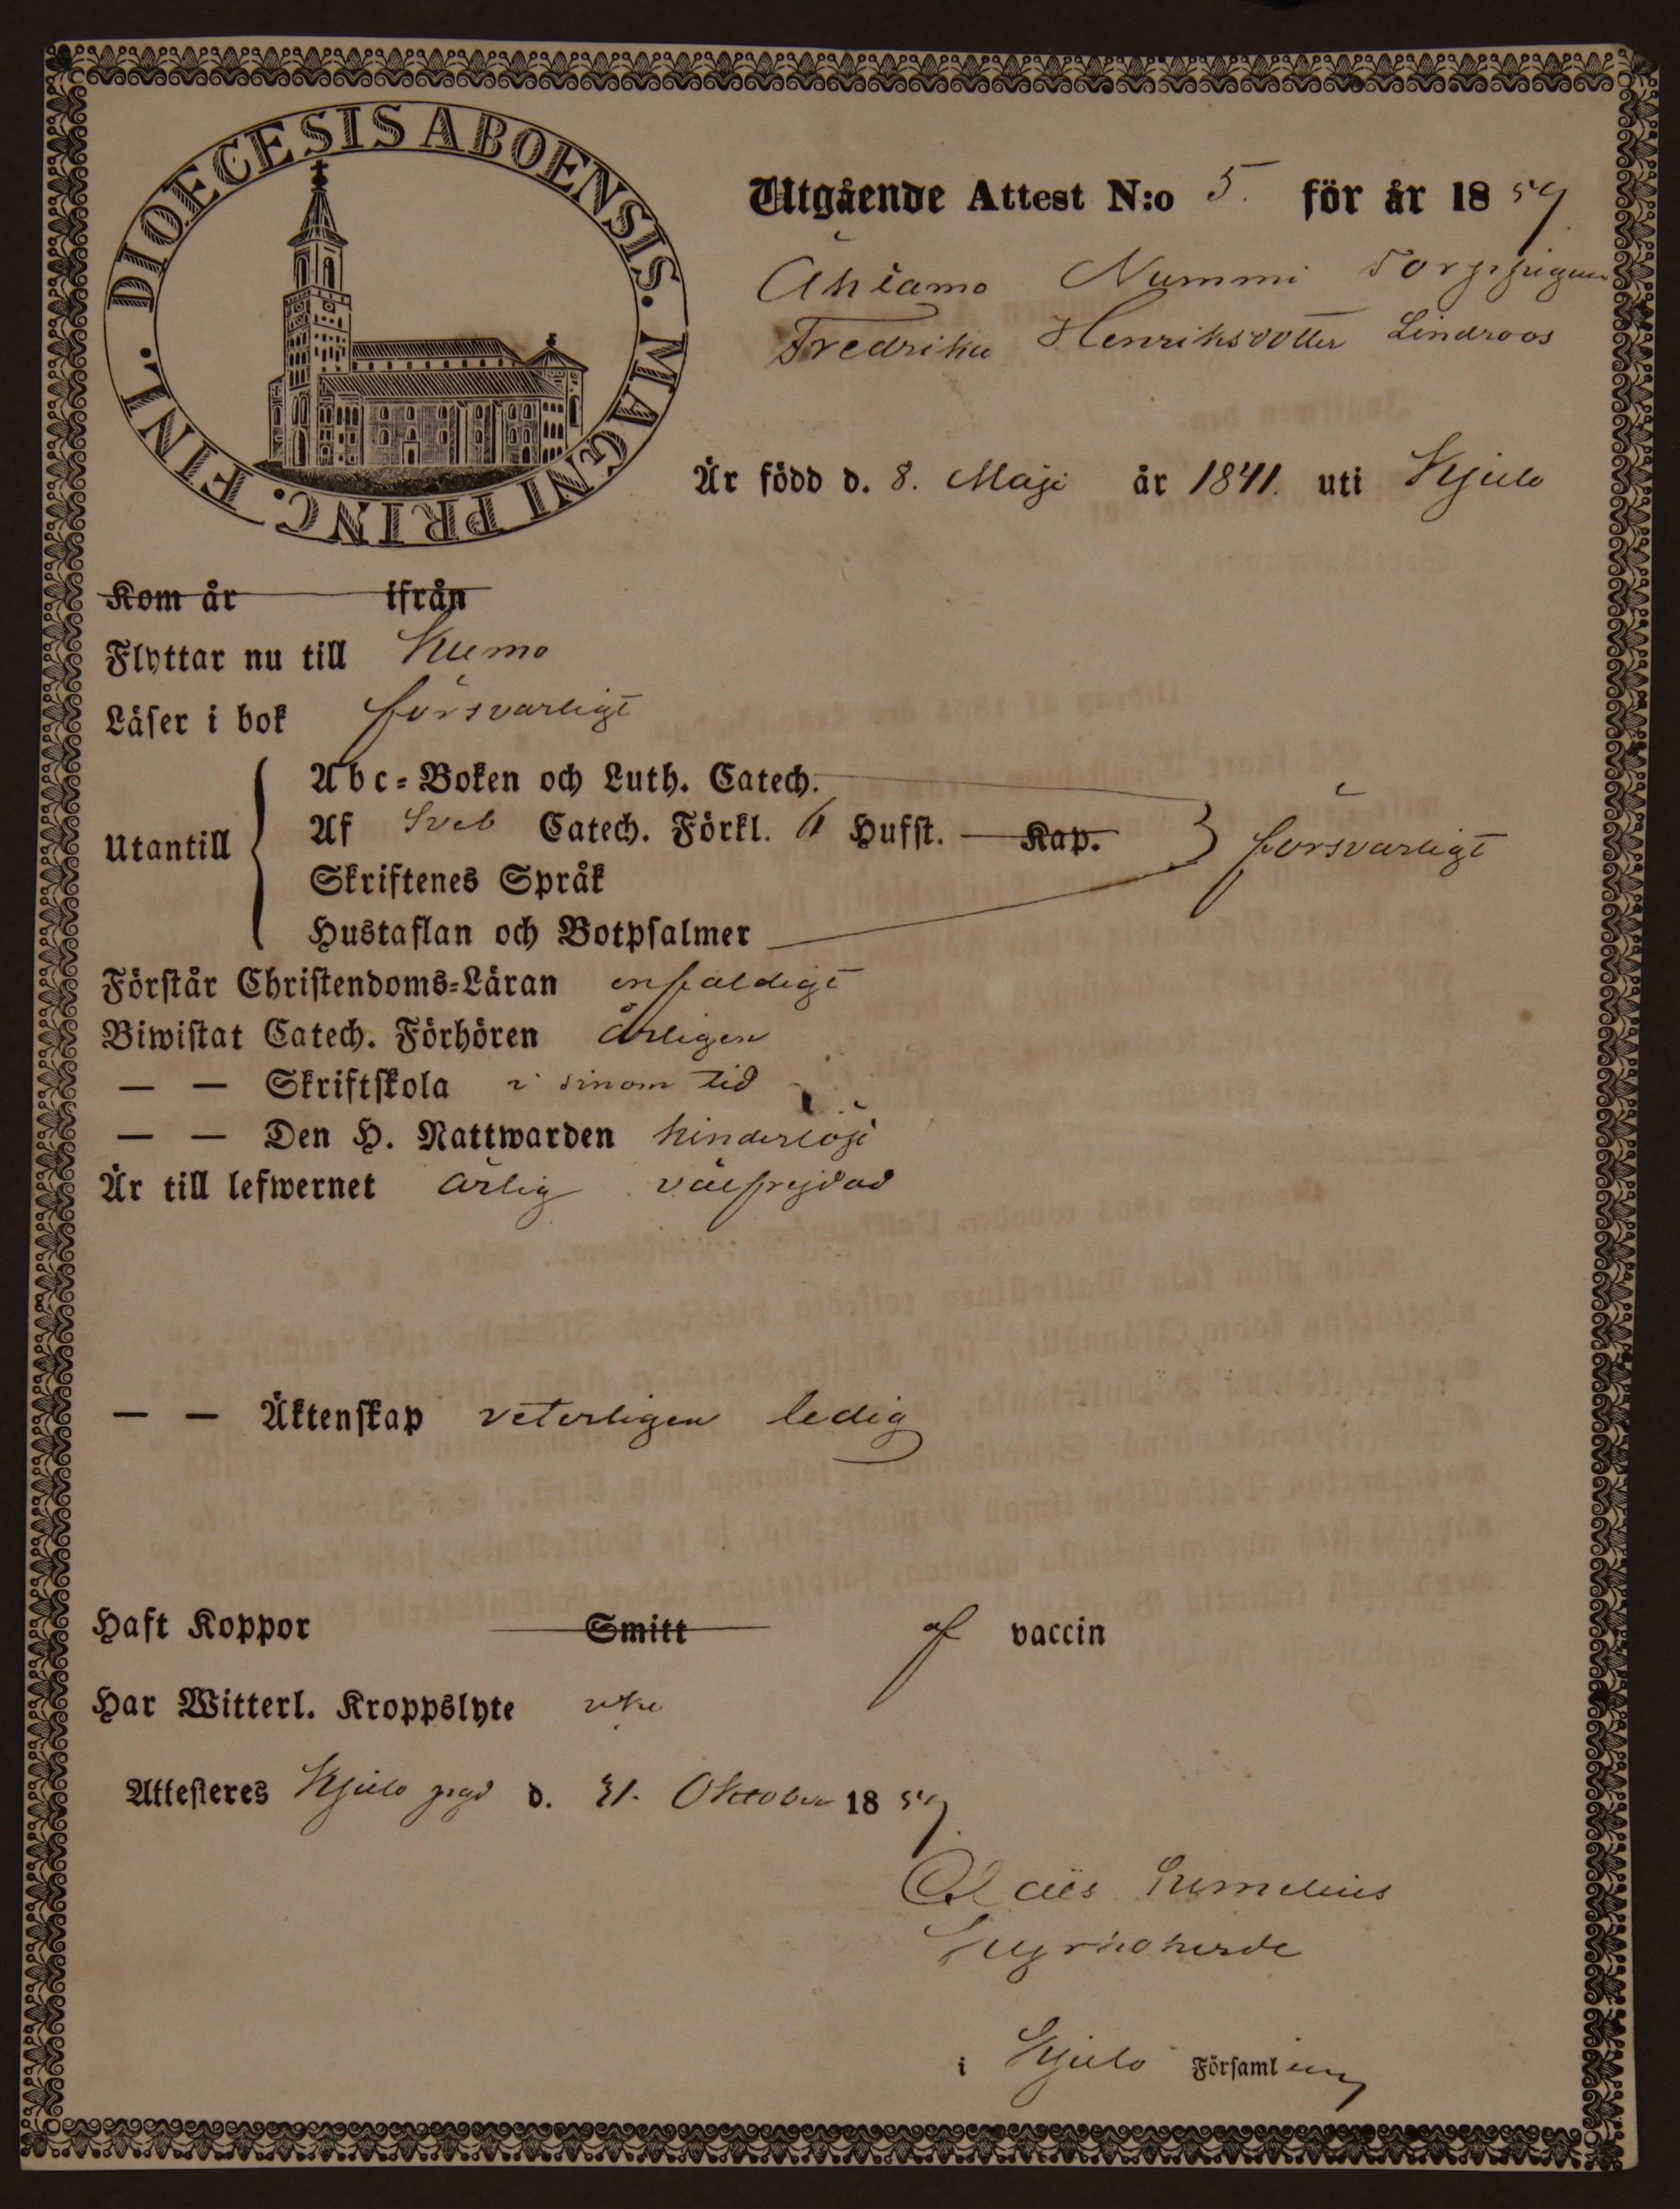 DIOECESIS ABOENSIS. MAGNI PRINC. FINL.
Utgående Attest N:o 5. för år 1859.
Nummi Torppigan
Fredrika Henriksdotter Lindroos
Är född d. 8. Maji år 1841. uti Kjulo
Kom år ifrån
Flyttar nu till Kumo
Läser i bok försvarligt
Utantill
Abc-Boken och Luth. Catech.
Af Sveb Catech. Förkl. 6 Hufst. Kap. försvarligt
Skriftenes Språk
Hustaflan och Botpsalmer
Förstår Christendoms-Läran enfaldigt
Biwistat Catech. Förhören årligen
— — Skriftskola i sinom tid
— — Den H. Nattwarden
Är till lefwernet ärlig välfrejdad
— — Äktenskap veterligen ledig
Haft Koppor Smitt af vaccin
Har Witterl. Kroppslyte icke
Attesteres Kjulo d. 31. Oktober 1859.
Kyrkoherde
i Kjulo Församling